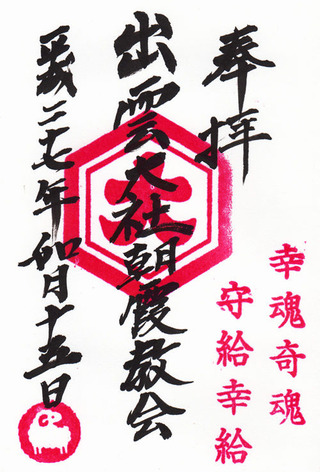 奉拝
出雲大社朝霞教会
平成二十七年如月十五日
大
幸魂奇魂
守給幸給